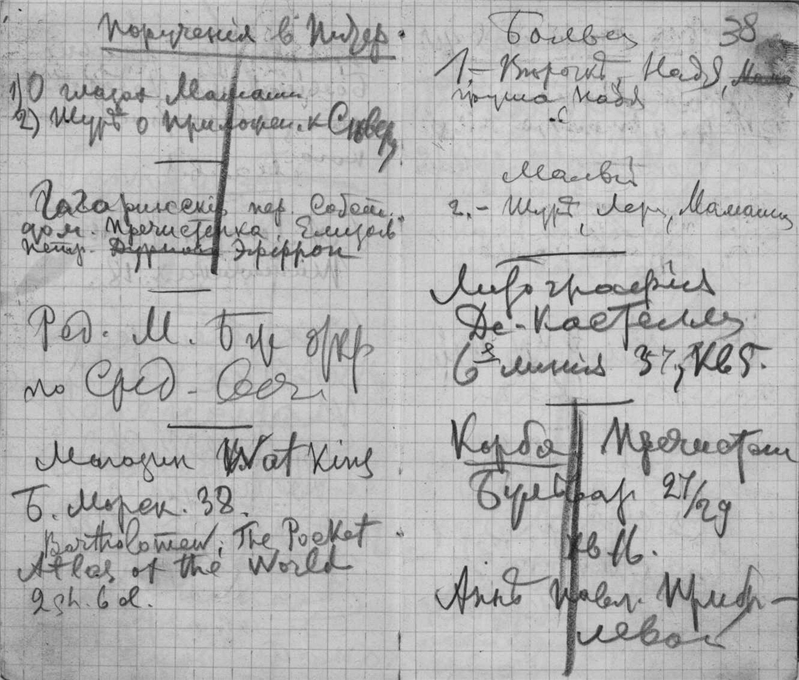 Порученія в Питер.
1) О глазах Мамаши
2) Шурѣ о приложен. к Сѣверу
Гагаринскій пер. Собств.
дом. Пречистенка, Елизав.
Петр. Дурново Эфррон
Ред. М. Бж
по Сред.
Магазин Watkins
Б. Морск. 38.
Bartholomew, The Pocket
Atlas of the World
2 sh. 6 d.
38
1.- Вѣрочкѣ, Надя, Мама,
Надя
2.- Шурѣ, Лер, Мамаши
Литографія
Де-Кастелли
6я линія 37, кв 5.
Корба Пречистен
Бульвар 27/29
кв 16.
Аннѣ Павл. Прибы-
левой